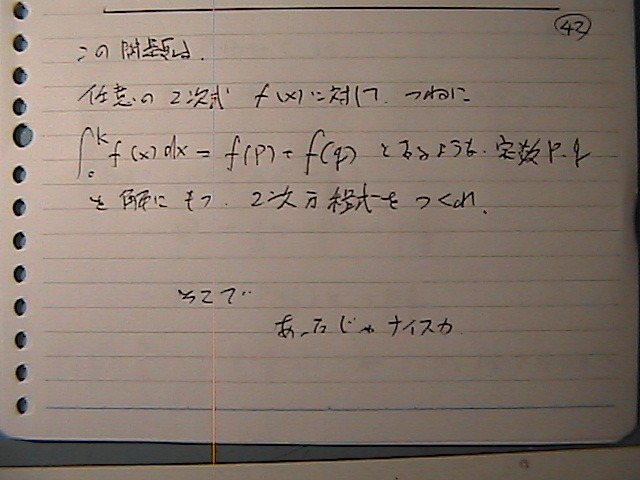 42
この問題は、
任意の2次式 f(x)に対して、つねに
∫₀ᵏ f(x)dx = f(p) + f(q) となるような、定数p.q
を解にもつ、2次方程式をつくれ。
そこで…
あったじゃナイスカ